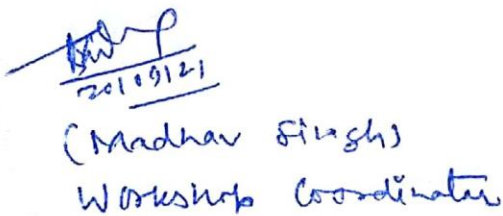 20/09/21
(Madhav Singh)
Workshop Coordinator